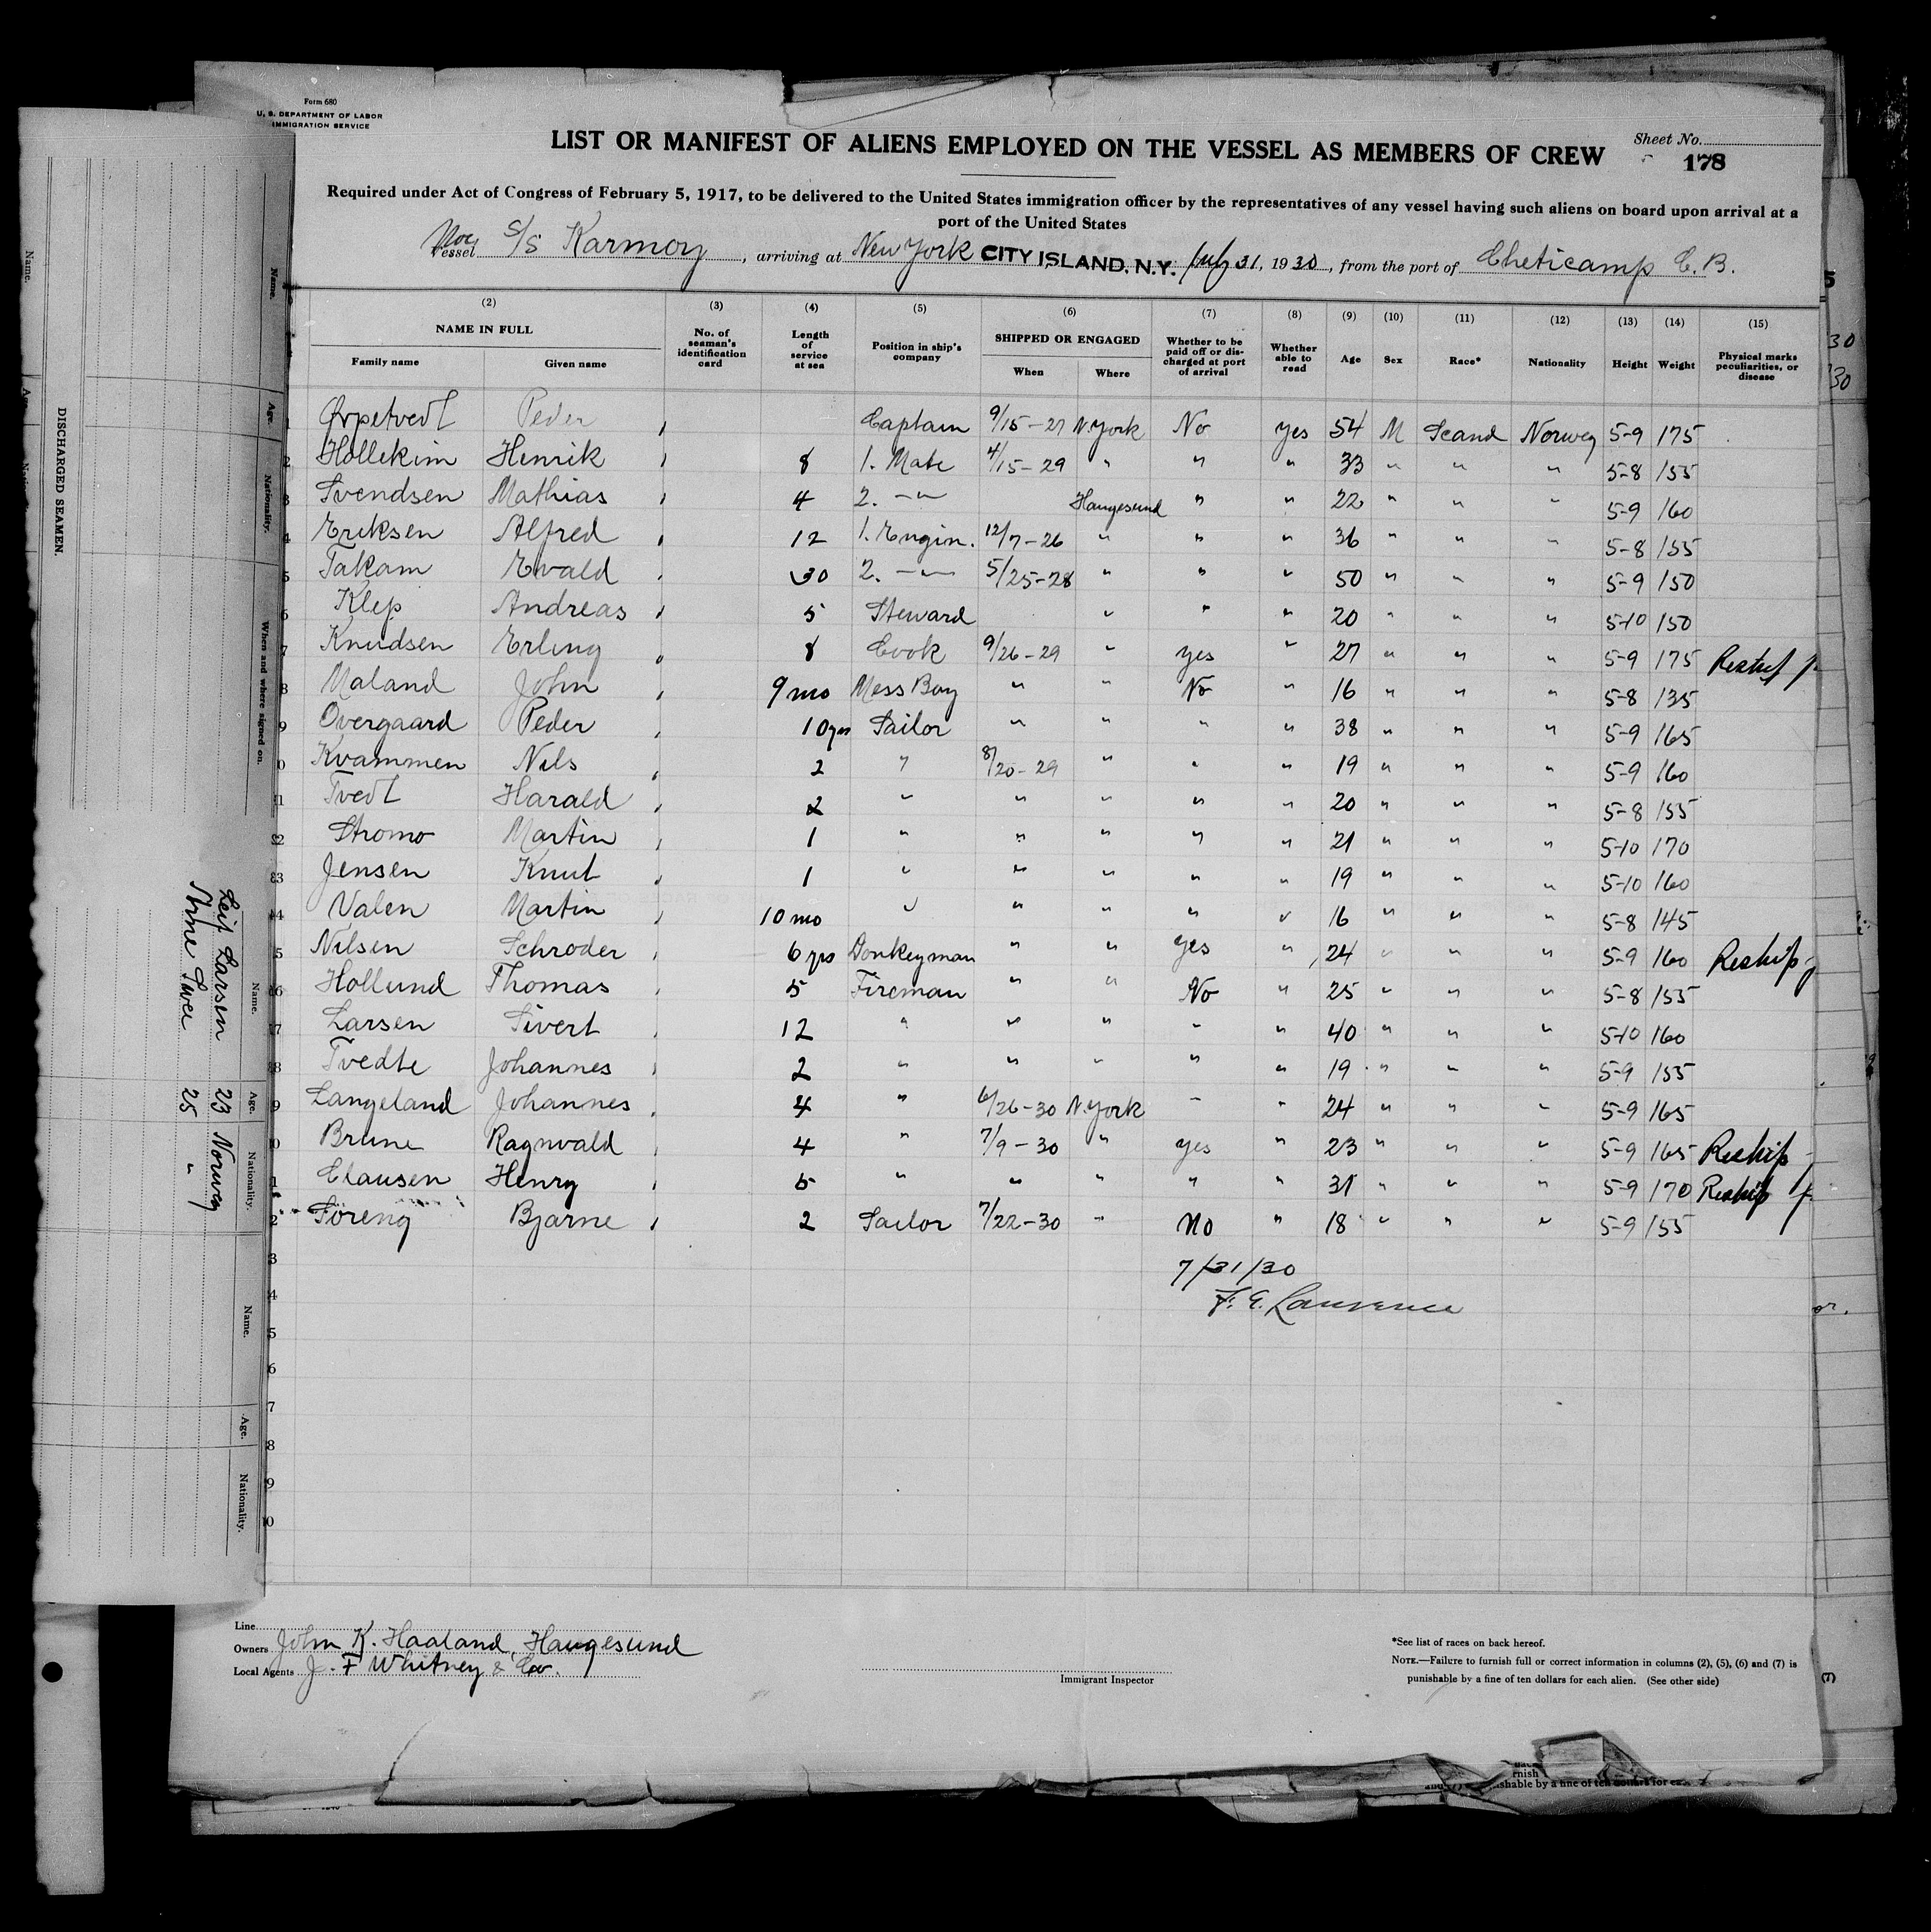 Form 680
U. S. DEPARTMENT OF LABOR
IMMIGRATION SERVICE
LIST OR MANIFEST OF ALIENS EMPLOYED ON THE VESSEL AS MEMBERS OF CREW
Sheet No.
178
Required under Act of Congress of February 5, 1917, to be delivered to the United States immigration officer by the representatives of any vessel having such aliens on board upon arrival at a
port of the United States
Vessel S/S Karmoy, arriving at New York CITY ISLAND, N.Y. July 31, 1930, from the port of Cheticamp C. B.
(2) (3) (4) (5) (6) (7) (8) (9) (10) (11) (12) (13) (14) (15)
NAME IN FULL No. of seaman's identification card Length of service at sea Position in ship's company SHIPPED OR ENGAGED Whether to be paid off or discharged at port of arrival Whether able to read Age Sex Race* Nationality Height Weight Physical marks peculiarities, or disease
Family name Given name When Where
Peder Captain 9/15-27 N. York No yes 54 M Scand Norweg 5-9 175
2 Hollekim Henrik 8 1. Mate 4/15-29 " " " 33 " " " 5-8 155
3 Svendsen Mathias 4 2. -"- Haugesund " " 22 " " " 5-9 160
4 Eriksen Alfred 12 1. Engin. 12/7-26 " " " 36 " " " 5-8 155
5 Takam Evald 30 2. -"- 5/25-28 " " " 50 " " " 5-9 150
6 Klep Andreas 5 Steward " " " 20 " " " 5-10 150
7 Knudsen Erling 8 Cook 9/26-29 " yes " 27 " " " 5-9 175
8 Maland John 9 mo Mess Boy " " No " 16 " " " 5-8 135
9 Overgaard Peder 10 yrs Sailor " " " " 38 " " " 5-9 165
0 Kvammen Nils 2 " 8/20-29 " " " 19 " " " 5-9 160
1 Tvedt Harald 2 " " " " " 20 " " " 5-8 155
2 Stromo Martin 1 " " " " " 21 " " " 5-10 170
3 Jensen Knut 1 " " " " " 19 " " " 5-10 160
4 Valen Martin 10 mo " " " " " 16 " " " 5-8 145
5 Nilsen Schroder 6 yrs Donkeyman " " yes " 24 " " " 5-9 160 Reship
6 Hollund Thomas 5 Fireman " " No " 25 " " " 5-8 155
7 Larsen Sivert 12 " " " " " 40 " " " 5-10 160
8 Tvedte Johannes 2 " " " " " 19 " " " 5-9 155
9 Langeland Johannes 4 " 6/26-30 N. York " " 24 " " " 5-9 165
0 Brune Ragnvald 4 " 7/9-30 " yes " 23 " " " 5-9 165 Reship
1 Clausen Henry 5 " " " " " 31 " " " 5-9 170 Reship
2 Soreng Bjarne 2 Sailor 7/22-30 " No " 18 " " " 5-9 155
3
7/31/30
4
F. E. Lawrence
5
6
7
8
9
0
Line
Owners John K. Haaland, Haugesund
Local Agents J. F Whitney & Co.
Immigrant Inspector
*See list of races on back hereof.
NOTE.—Failure to furnish full or correct information in columns (2), (5), (6) and (7) is
punishable by a fine of ten dollars for each alien. (See other side)
DISCHARGED SEAMEN.
Name. Age. Nationality. When and where signed on.
Name. Age. Nationality.
Leif Larsen 23 Norway
25 "
Name. Age. Nationality.